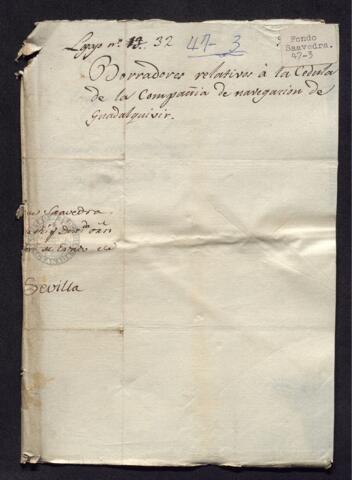 Legajo nº. 32 47-3
Fondo
Saavedra.
47-3
Borradores relativos à la Cedula
de la Compañia de navegacion de
Guadalquivir.
Saavedra
Sevilla